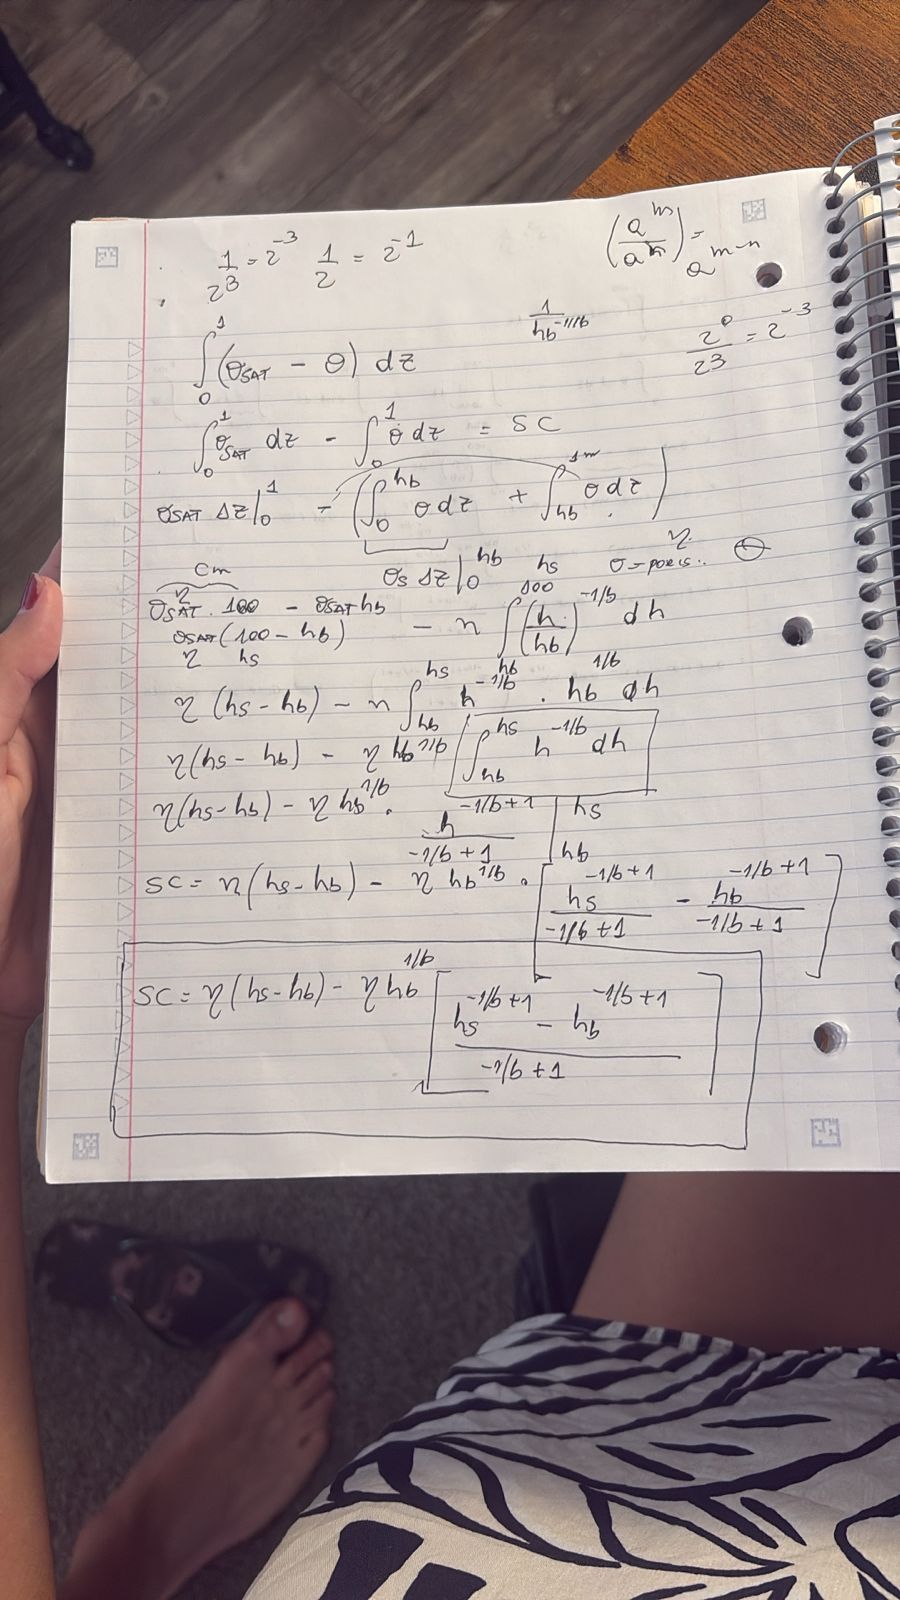 1/2³ = 2⁻³   1/2 = 2⁻¹   (aᵐ/aⁿ) = aᵐ⁻ⁿ
1/hb^-1/b   2⁰/2³ = 2⁻³
∫₀¹ (θSAT - θ) dz
∫₀¹ θSAT dz - ∫₀¹ θ dz = SC
θSAT Δz|₀¹ - (∫₀^hb θ dz + ∫hb^1m θ dz)
θs Δz|₀^hb
cm   η   hs   η
θSAT · 100 - θSAT hb
θSAT (100 - hb) - n ∫hb^100 (h/hb)^-1/b dh
η   hs
η (hs - hb) - n ∫hb^hs h^-1/b · hb^1/b dh
η (hs - hb) - η hb^1/b (∫hb^hs h^-1/b dh
η (hs - hb) - η hb^1/b · h^-1/b+1 / -1/b+1 |hb^hs
SC = η (hs - hb) - η hb^1/b · [hs^-1/b+1 / -1/b+1 - hb^-1/b+1 / -1/b+1]
SC = η (hs - hb) - η hb^1/b [hs^-1/b+1 - hb^-1/b+1 / -1/b+1]